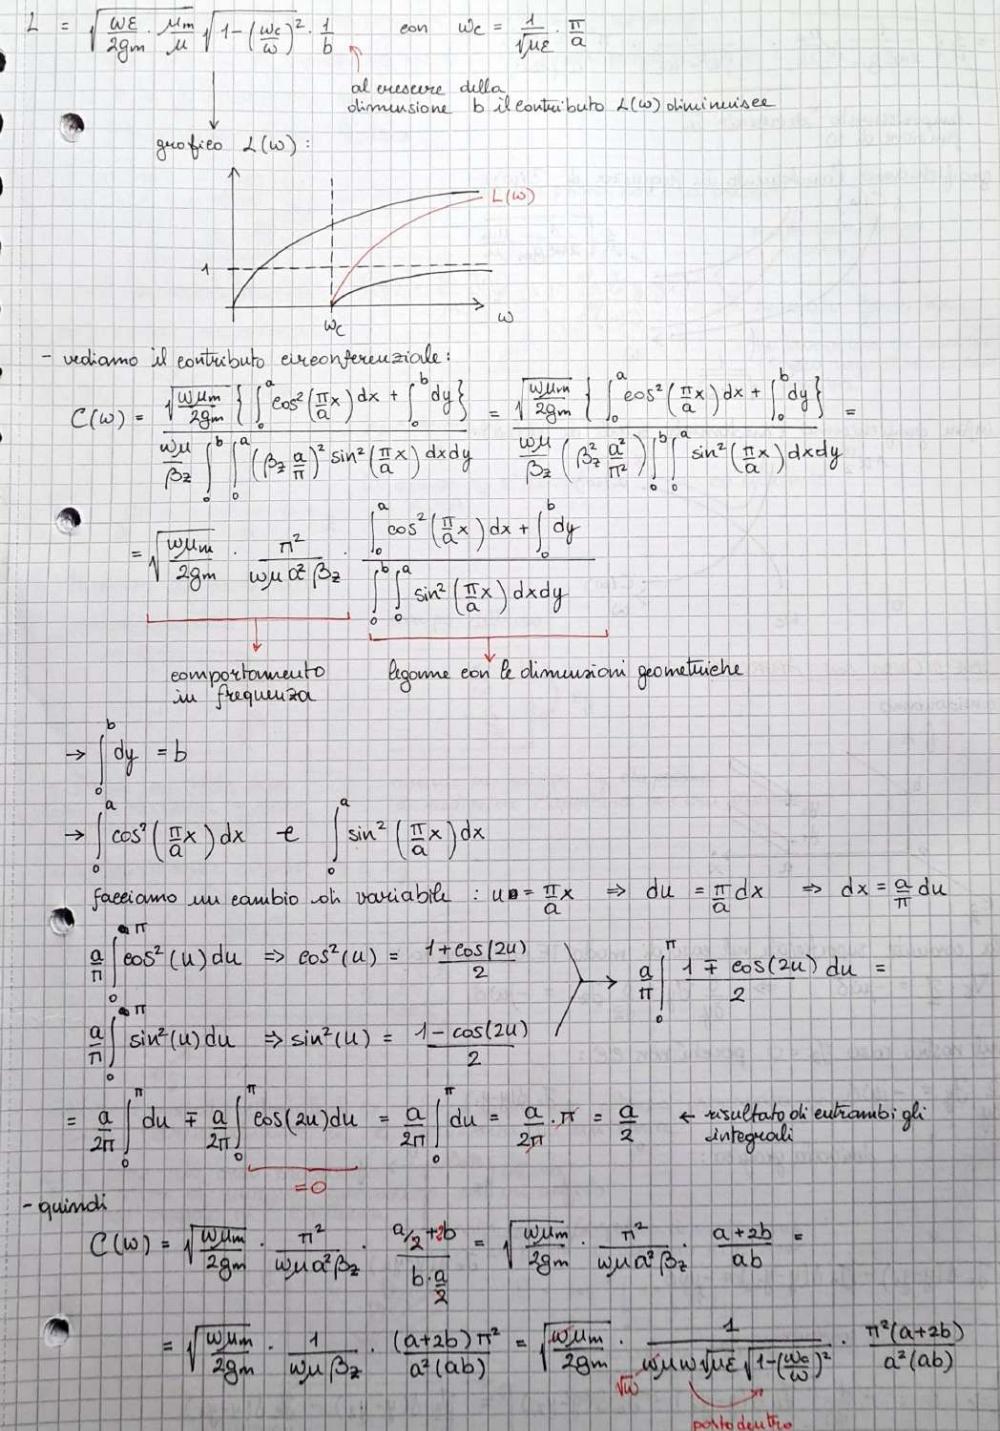 L = √(ωε/2gm · μm/μ) √(1-(ωc/ω)²) · 1/b con ωc = 1/√με · π/a
al crescere della
dimensione b il contributo L(ω) diminuisce
grafico L(ω) :
L(ω)
1
ωc
ω
- vediamo il contributo circonferenziale :
C(ω) = √(ωμm/2gm) { ∫₀ᵃ cos²(π/a x) dx + ∫₀ᵇ dy } / ωμ/βz ∫₀ᵇ ∫₀ᵃ (βz a/π)² sin²(π/a x) dxdy = √(ωμm/2gm) { ∫₀ᵃ cos²(π/a x) dx + ∫₀ᵇ dy } / ωμ/βz (βz² a²/π²) ∫₀ᵇ ∫₀ᵃ sin²(π/a x) dxdy =
= √(ωμm/2gm) · π²/ωμa²βz · ∫₀ᵃ cos²(π/a x) dx + ∫₀ᵇ dy / ∫₀ᵇ ∫₀ᵃ sin²(π/a x) dxdy
comportamento
in frequenza
legame con le dimensioni geometriche
→ ∫₀ᵇ dy = b
→ ∫₀ᵃ cos²(π/a x) dx e ∫₀ᵃ sin²(π/a x) dx
facciamo un cambio di variabile : u = π/a x ⇒ du = π/a dx ⇒ dx = a/π du
a/π ∫₀^π cos²(u) du ⇒ cos²(u) = 1+cos(2u)/2
→ a/π ∫₀^π 1∓cos(2u)/2 du =
a/π ∫₀^π sin²(u) du ⇒ sin²(u) = 1-cos(2u)/2
= a/2π ∫₀^π du ∓ a/2π ∫₀^π cos(2u) du = a/2π ∫₀^π du = a/2π · π = a/2 ← risultato di entrambi gli
integrali
=0
- quindi
C(ω) = √(ωμm/2gm) · π²/ωμa²βz · a/2+b / b·a/2 = √(ωμm/2gm) · π²/ωμa²βz · a+2b/ab =
= √(ωμm/2gm) · 1/ωμβz · (a+2b)π²/a²(ab) = √(ωμm/2gm) · 1/ωμω√με √(1-(ωc/ω)²) · π²(a+2b)/a²(ab)
√ω
porto dentro